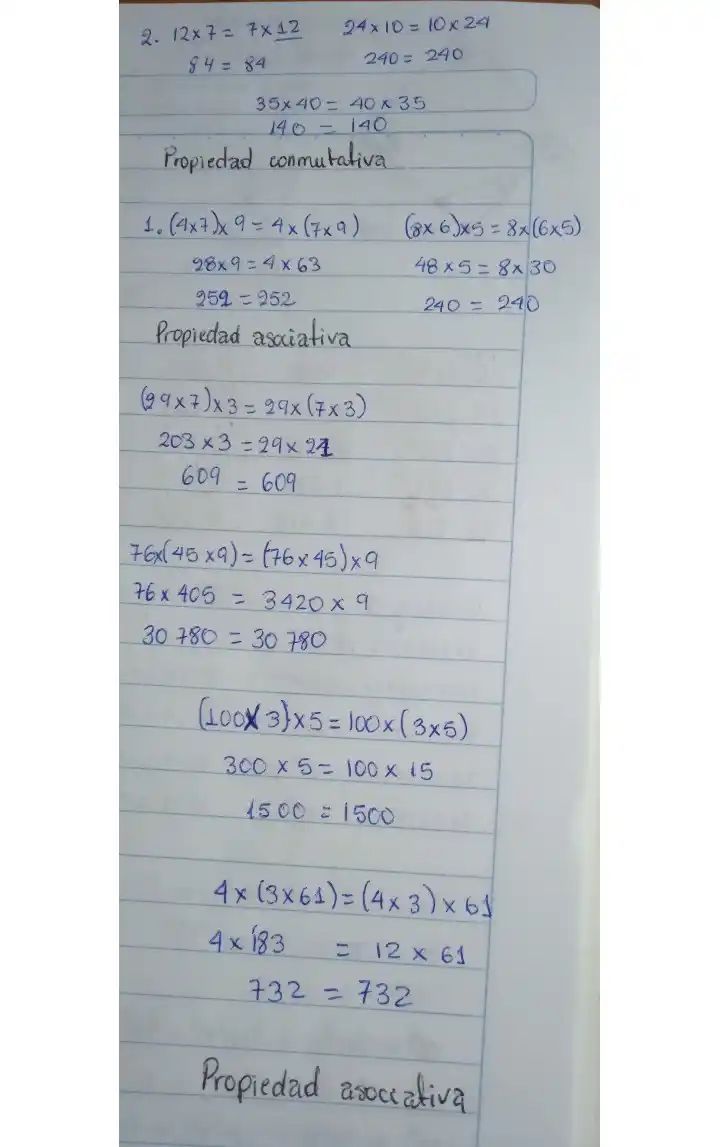 2. 12x7 = 7x12 24x10 = 10x24
84 = 84 240 = 240
35x40 = 40x35
140 = 140
Propiedad conmutativa
1. (4x7)x9 = 4x(7x9) (8x6)x5 = 8x(6x5)
28x9 = 4x63 48x5 = 8x30
252 = 252 240 = 240
Propiedad asociativa
(29x7)x3 = 29x(7x3)
203x3 = 29x21
609 = 609
76x(45x9) = (76x45)x9
76x405 = 3420x9
30 780 = 30 780
(100x3)x5 = 100x(3x5)
300x5 = 100x15
1500 = 1500
4x(3x61) = (4x3)x61
4x183 = 12x61
732 = 732
Propiedad asociativa